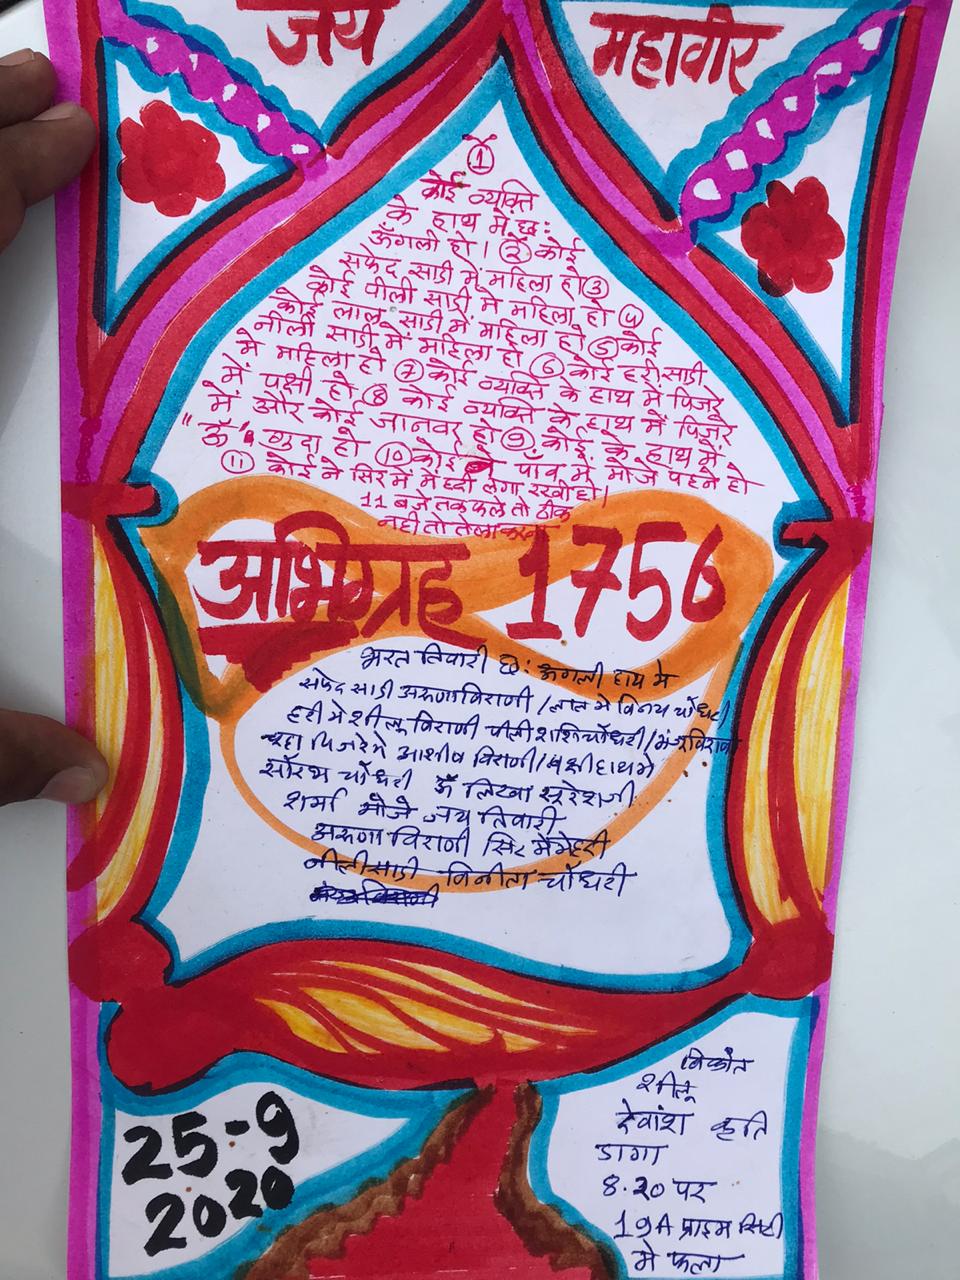 जय महावीर
①
कोई व्यक्ति
के हाथ में छः
ऊँगली हो। ② कोई
सफेद साडी में महिला हो ③
कोई पीली साडी में महिला हो ④
कोई लाल साडी में महिला हो ⑤ कोई
नीली साडी में महिला हो ⑥ कोई हरी साडी
में महिला हो ⑦ कोई व्यक्ति के हाथ में पिंजरे
में पक्षी हो ⑧ कोई व्यक्ति के हाथ में पिंजरे
में और कोई जानवर हो ⑨ कोई के हाथ में
"ॐ" गुदा हो ⑩ कोई पाँव में मोजे पहने हो
⑪ कोई ने सिर में मेहंदी लगा रखी हो।
11 बजे तक फले तो ठीक
नही तो तेला करना
अभिग्रह 1756
भरत तिवारी छः ऊंगली हाथ मे
सफेद साडी अरुणा विराणी / लाल मे विनय चौधरी
हरी मे शीलू विराणी पीली शशि चौधरी / मंजू विराणी
चूहा पिंजरे मे आशीष विराणी / पंक्षी हाथ मे
सौरभ चौधरी ॐ लिखा सुरेशजी
शर्मा मौजे जय तिवारी
अरुणा विराणी सिर में मेहंदी
नीली साडी विनीता चौधरी
25-9
2020
शीलू
देवांश कृति
डागा
8.20 पर
19A प्राइम सिटी
मे फला